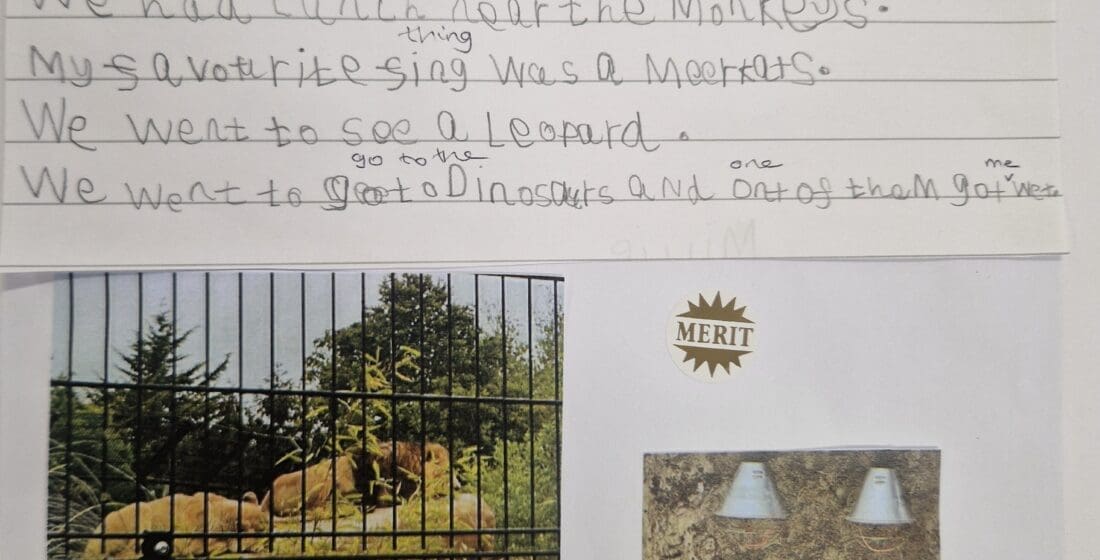 We had Lunch near the Monkeys.
thing
My favourite sing was a Meerkats.
We went to see a Leopard.
go to the one me
We went to Dinosaurs and of them got wet.
MERIT